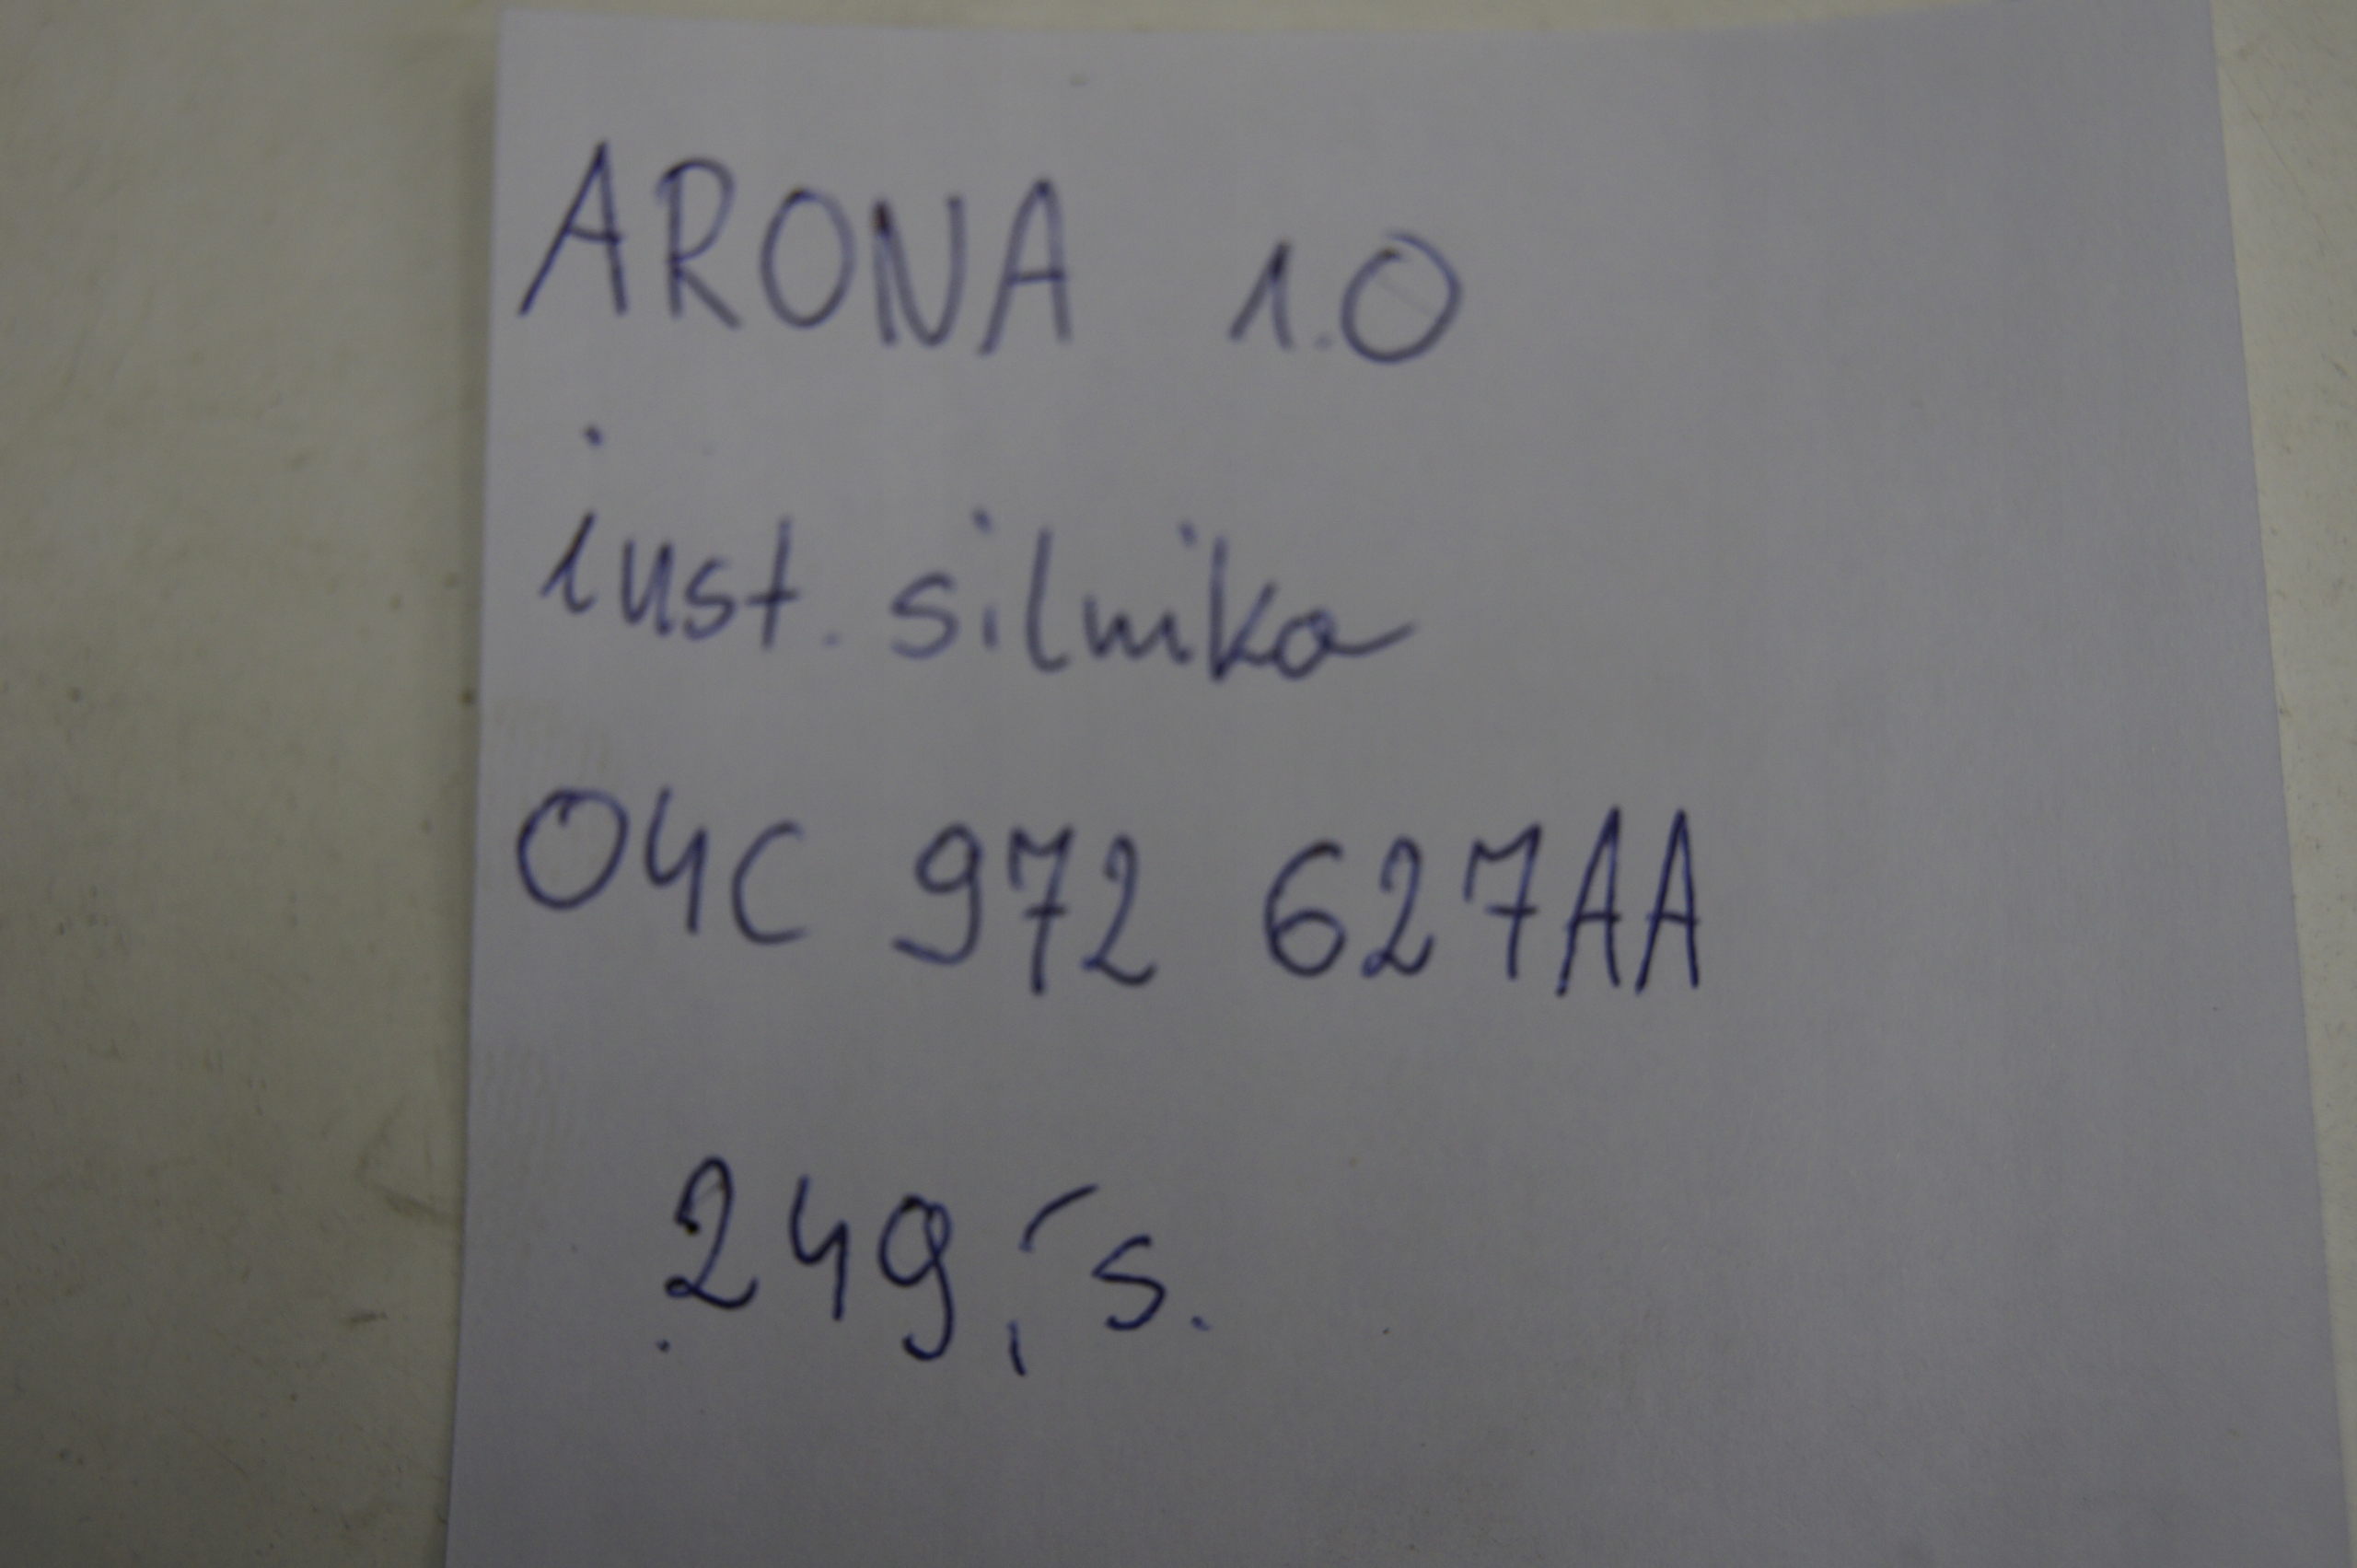 ARONA 1.0
inst. silnika
04C 972 627AA
249,- s.